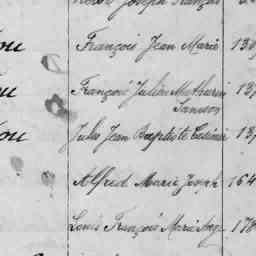 Joseph François
ou François Jean Marie 13
ou François Julien Mathurin 13
Samson
ou Jules Jean Baptiste Casimir 13
Alfred Marie Joseph 164
Louis François Marie Ange 178